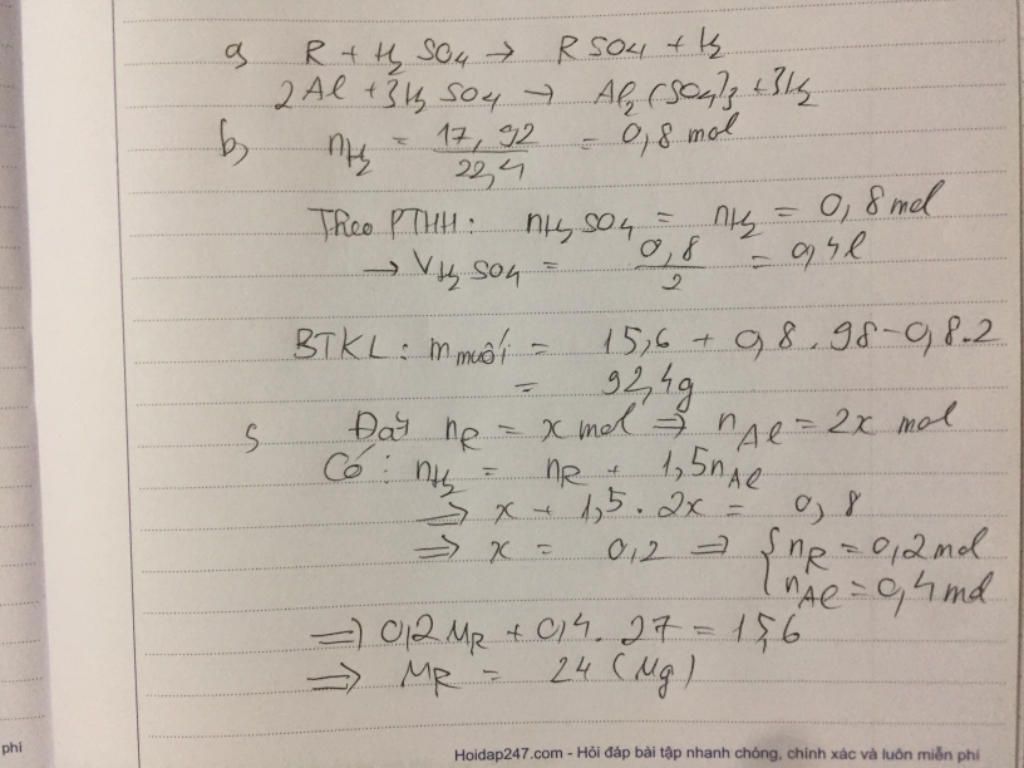 a, R + H2SO4 → RSO4 + H2
2Al + 3H2SO4 → Al2(SO4)3 + 3H2
b, nH2 = 17,92/22,4 = 0,8 mol
Theo PTHH: nH2SO4 = nH2 = 0,8 mol
→ VH2SO4 = 0,8/2 = 0,4l
BTKL: mmuối = 15,6 + 0,8 . 98 - 0,8.2
= 92,4g
Đặt nR = x mol ⇒ nAl = 2x mol
Có: nH2 = nR + 1,5nAl
⇒ x + 1,5 . 2x = 0,8
⇒ x = 0,2 ⇒ { nR = 0,2 mol
nAl = 0,4 mol
⇒ 0,2MR + 0,4 . 27 = 15,6
⇒ MR = 24 (Mg)
phí
Hoidap247.com - Hỏi đáp bài tập nhanh chóng, chính xác và luôn miễn phí